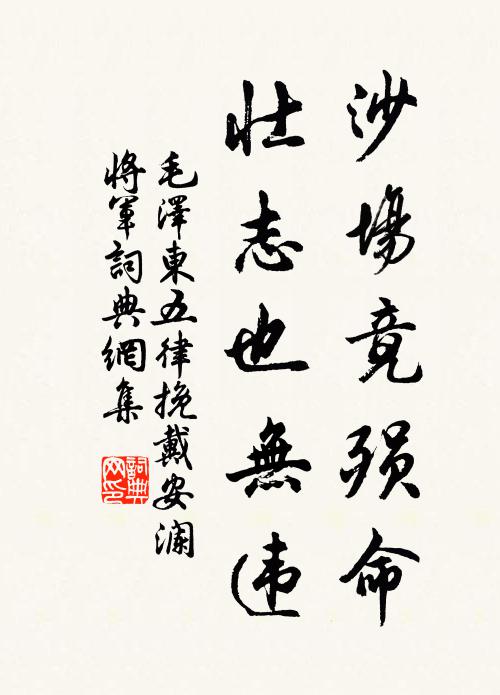 沙場竟殒命
壮志也無违
毛澤東五律挽戴安澜
將軍詞典網集
詞典网印